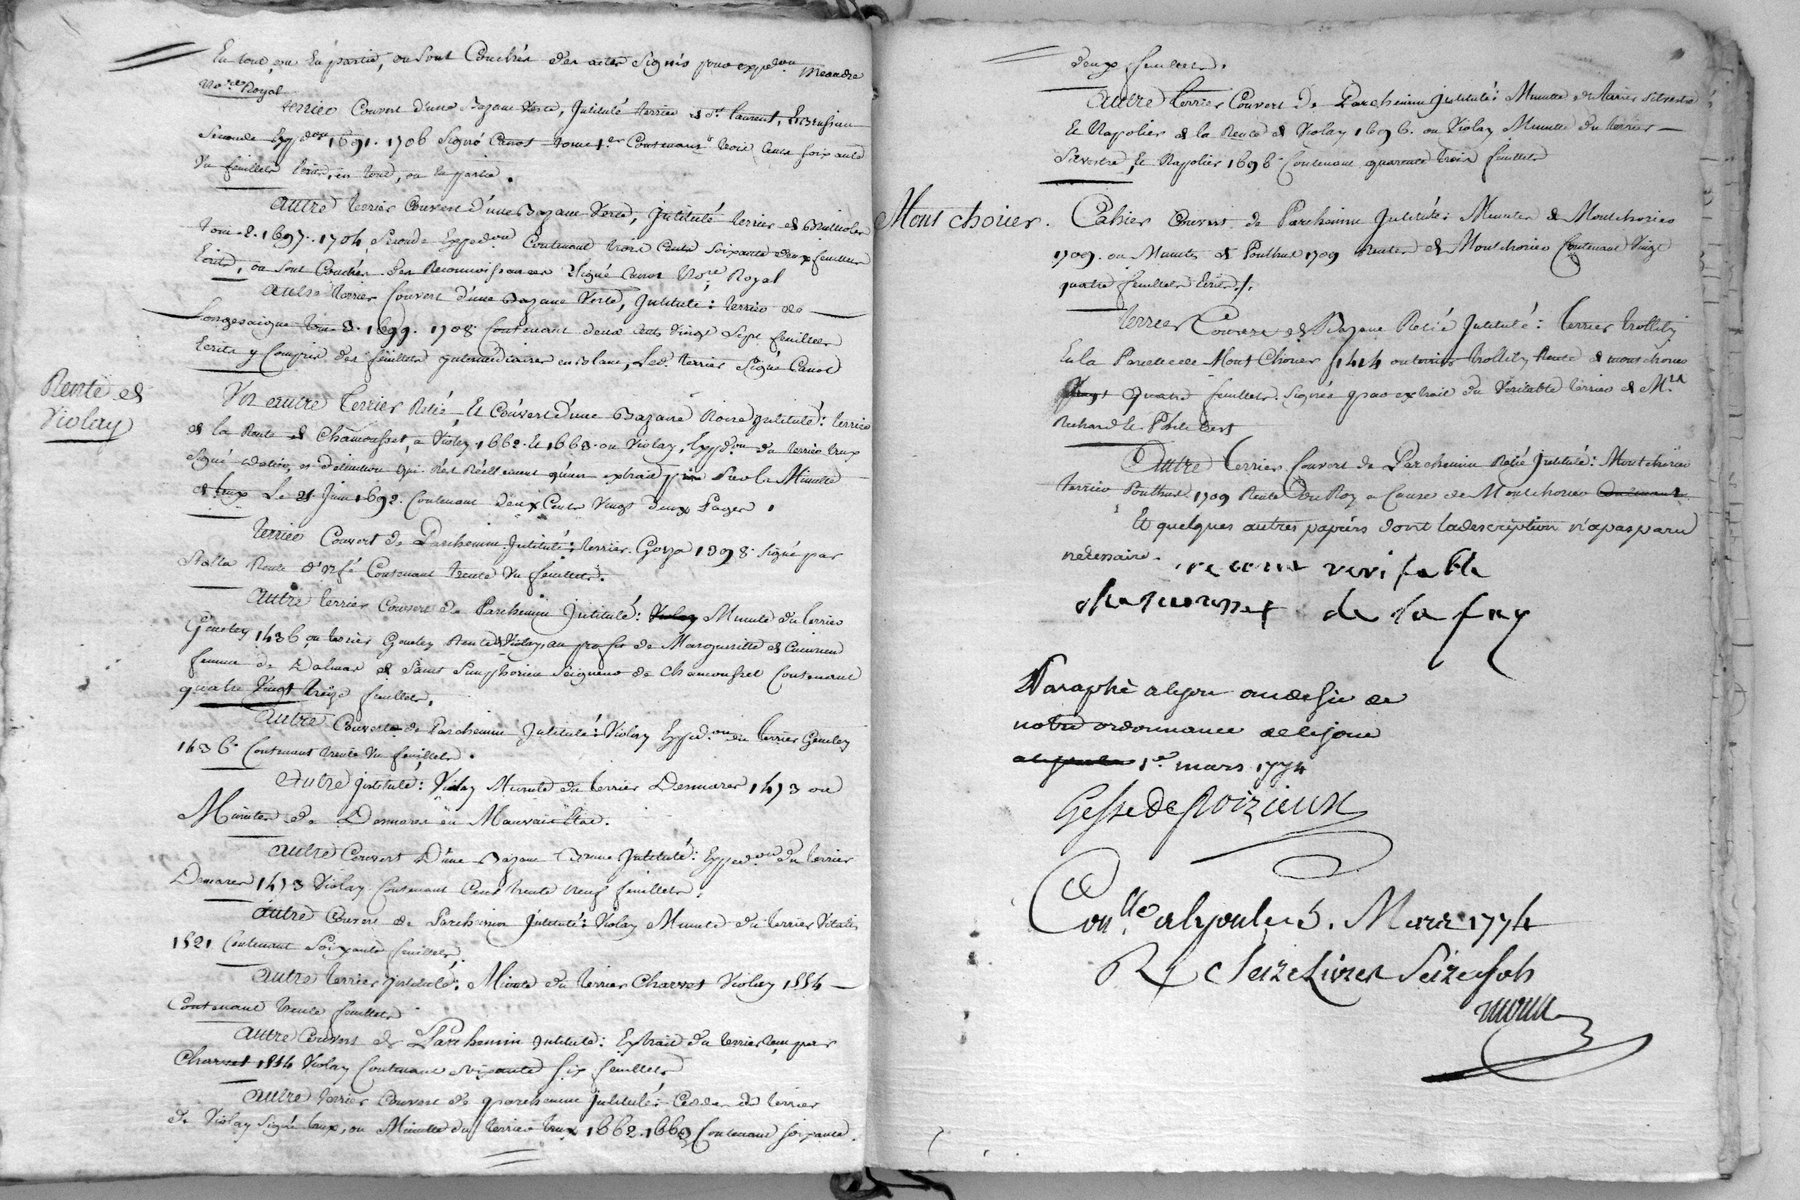 En tout, ou En partie, ou sont Couchés des actes Signés pour expedon Meandre
No.re Royal
terrier Couvert d'une Bazane Verte, Intitulé terrier de st. laurent,
Seconde Expedon 1691. 1706 Signé Canot tome 1.er Contenant trois Cents soixante
Un feuillets Ecrits, en tout, ou En partie.
autre terrier Couvert d'une Bazane Verte, Intitulé terrier de
tome 2. 1697. 1704 Seconde Expedon Contenant trois Cents Soixante deux feuillets
Ecrits, ou sont Couchés des Reconnoissances Signé Canot No.re Royal
autre terrier Couvert d'une Bazane Verte, Intitulé: terrier de
Longesaigne tom. 3. 1699. 1708. Contenant deux Cents Vingt Sept feuillets
Ecrits y Compris des feuillets intermediaires en blanc, Led. terrier Signé Canot
Rente de
Violay
Un autre terrier Relié, Et Couvert d'une Bazane Noire Intitulé: terrier
de la Rente de Chamousset, a Violay 1662. et 1663. ou Violay, Expedon du terrier trux
Signé qui n'est Reellement qu'un extrait pris Sur la Minutte
de trux Le 21. Juin 1692. Contenant deux Cents Vingt deux Pages.
terrier Couvert de Parchemin Intitulé: terrier Goyo 1398. Signé par
Rente d'Urfé Contenant trente Un feuillets.
autre terrier Couvert de Parchemin Intitulé: Minutte du terrier
Gontey 1436, ou terrier Gontey Rente de Violay, au profit de Margueritte de
femme de Dalmas de Saint Simphorien Seigneur de Chamousset Contenant
quatre Vingt treize feuillets.
autre Couvert de Parchemin Intitulé: Violay Exped.on du terrier Gontey
1436. Contenant trente Un feuillets.
autre Intitulé: Violay Minutte du terrier Demares 1473 ou
Minutes de Demares en Mauvais Etat.
autre Couvert d'une Bazane Brune Intitulé: Exped.on du terrier
Demares 1473 Violay Contenant Cent trente Neuf feuillets.
autre Couvert de Parchemin Intitulé: Violay Minutte du terrier Vitalis
1521 Contenant Soixante feuillets.
autre terrier Intitulé: Minute du terrier Charvet Violay 1554
Contenant trente feuillets
autre Couvert de Parchemin Intitulé: Extrait du terrier par
Charvet 1554 Violay Contenant soixante six feuillets
autre terrier Couvert de parchemin Intitulé: du terrier
de Violay Signé trux, ou Minutte du terrier trux 1662. 1663 Contenant soixante.
deux feuillets.
autre terrier Couvert De Parchemin Intitulé: Minutte Silvestre
Et Napolier de la Rente de Violay 1696. ou Violay Minutte du terrier
Silvestre, Et Napolier 1696. Contenant quarente trois feuillets
Montchorier.
Cahier Couvert de Parchemin Intitulé: Minutes de Montchorier
1709. ou Minutes de Ponthus 1709 Rentes de Montchorier Contenant Vingt
quatre feuillets Ecrits.
terrier Couvert de Bazane Relié Intitulé: terrier trollity
En la Paroisse de Mont Chorier 1414 ou terrier trollity Rente de montchorier
quatre feuillets Signés par extrait du Veritable terrier de
Richard et Philibert
autre terrier Couvert de Parchemin Relié Intitulé: Montchorier
terrier Ponthus 1709 Rente Du Roy a Cause de Montchorier
Et quelques autres papiers dont la description n'a pas paru
necessaire.
veritable
chamousset de la fay
Paraphé a lyon au desir de
notre ordonnance de ce jour
1.er mars 1774
Gesse De Poizieux
Con.lle a lyon le 5. Mars 1774
R. Seize Livres Seize sols